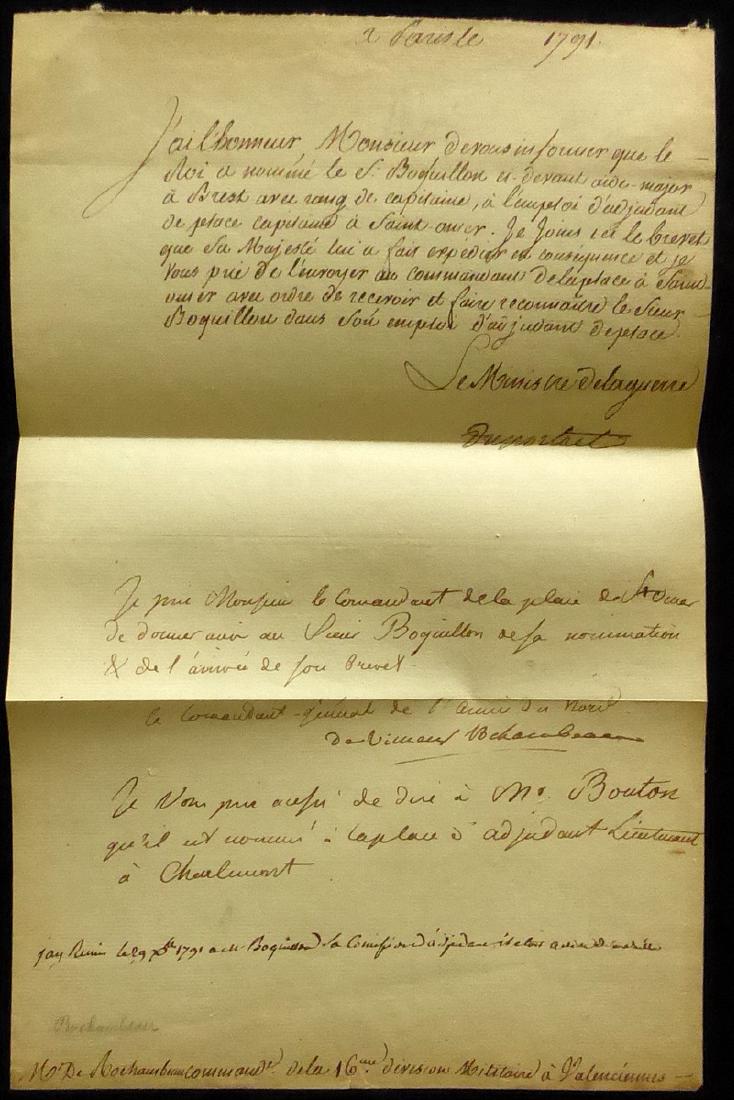 à Paris le 1791.
J'ai l'honneur, Monsieur de vous informer que le
Roi a nommé le S. Boquillon ci-devant aide-major
à Brest avec rang de capitaine, à l'emploi d'adjudant
de place capitaine à Saint-omer. Je joins ici le brevet
que Sa Majesté lui a fait expédier en conséquence et je
vous prie de l'envoyer au commandant de la place à Saint
omer avec ordre de recevoir et faire reconnaitre le Sieur
Boquillon dans son emploi d'adjudant de place.
Le Ministre de la guerre
Duportail
Je prie Monsieur le Comandant de la place de St Omer
de donner avis au Sieur Boquillon de sa nomination
& de l'arrivée de son brevet.
le Comandant-général de l'armée du Nord
de Vimeur Rochambeau
Je Vous prie aussi de dire à Mr. Bouton
qu'il est nommé à la place d'adjudant Lieutenant
à Charlemont
jay Remis le 29 1791 a M Boquillon sa Comission d'adjudant
Rochambeau
Mr. De Rochambeau commandt. de la 16me. division Militaire à Valenciennes